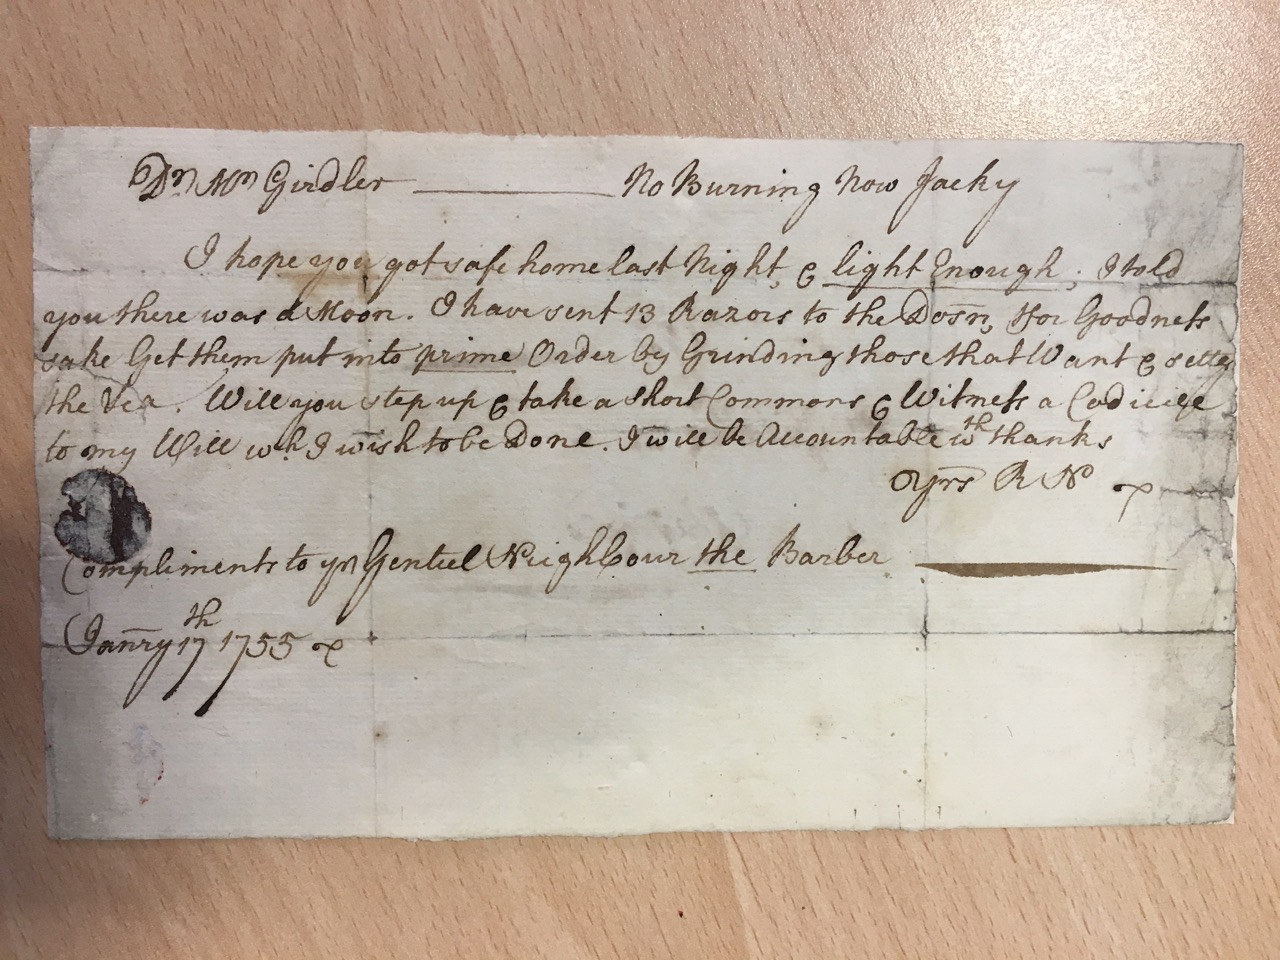 Dr Mr Girdler ——— No Burning Now Jacky
I hope you got safe home last Night, & light Enough; I told
you there was a Moon. I have sent 13 Razors to the Dosn, ffor Goodness
sake Get them put into prime Order by Grinding those that Want & setting
the Rest. Will you step up & take a short Commons & Witness a Codicile
to my Will wh. I wish to be Done. I will be Accountable wth thanks
Yrs R N
Compliments to yr Genteel Neighbour the Barber
Janry 17th 1755